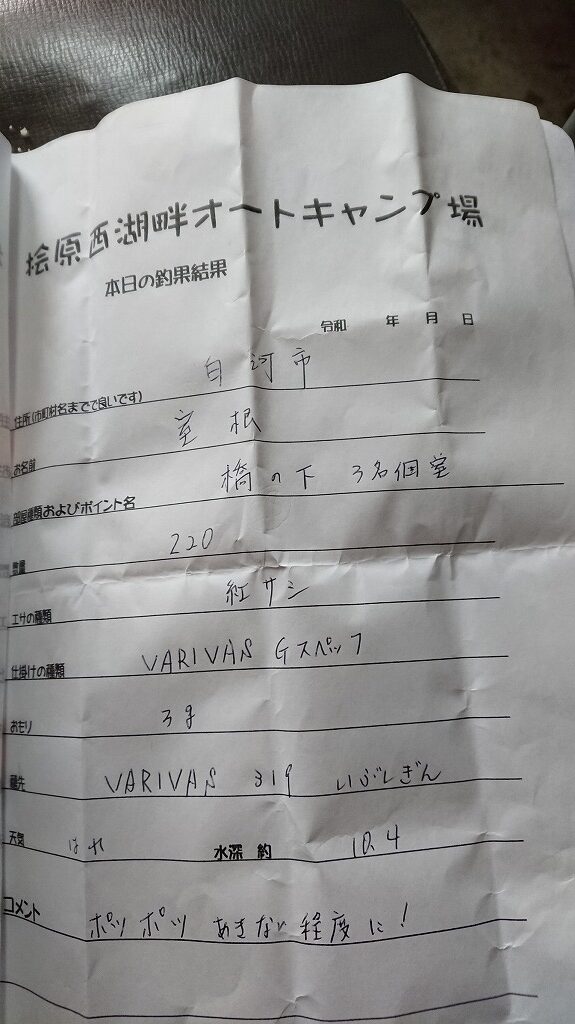 桧原西湖畔オートキャンプ場
本日の釣果結果
令和 年 月 日
住所(市町村名までで良いです) 白河市
お名前 室根
部屋種類およびポイント名 橋の下 3名個室
数量 220
エサの種類 紅サシ
仕掛けの種類 VARIVAS Gスペック
おもり 3g
穂先 VARIVAS 319 いぶしぎん
天気 はれ 水深 約 10.4
コメント ポツポツ あきない程度に!